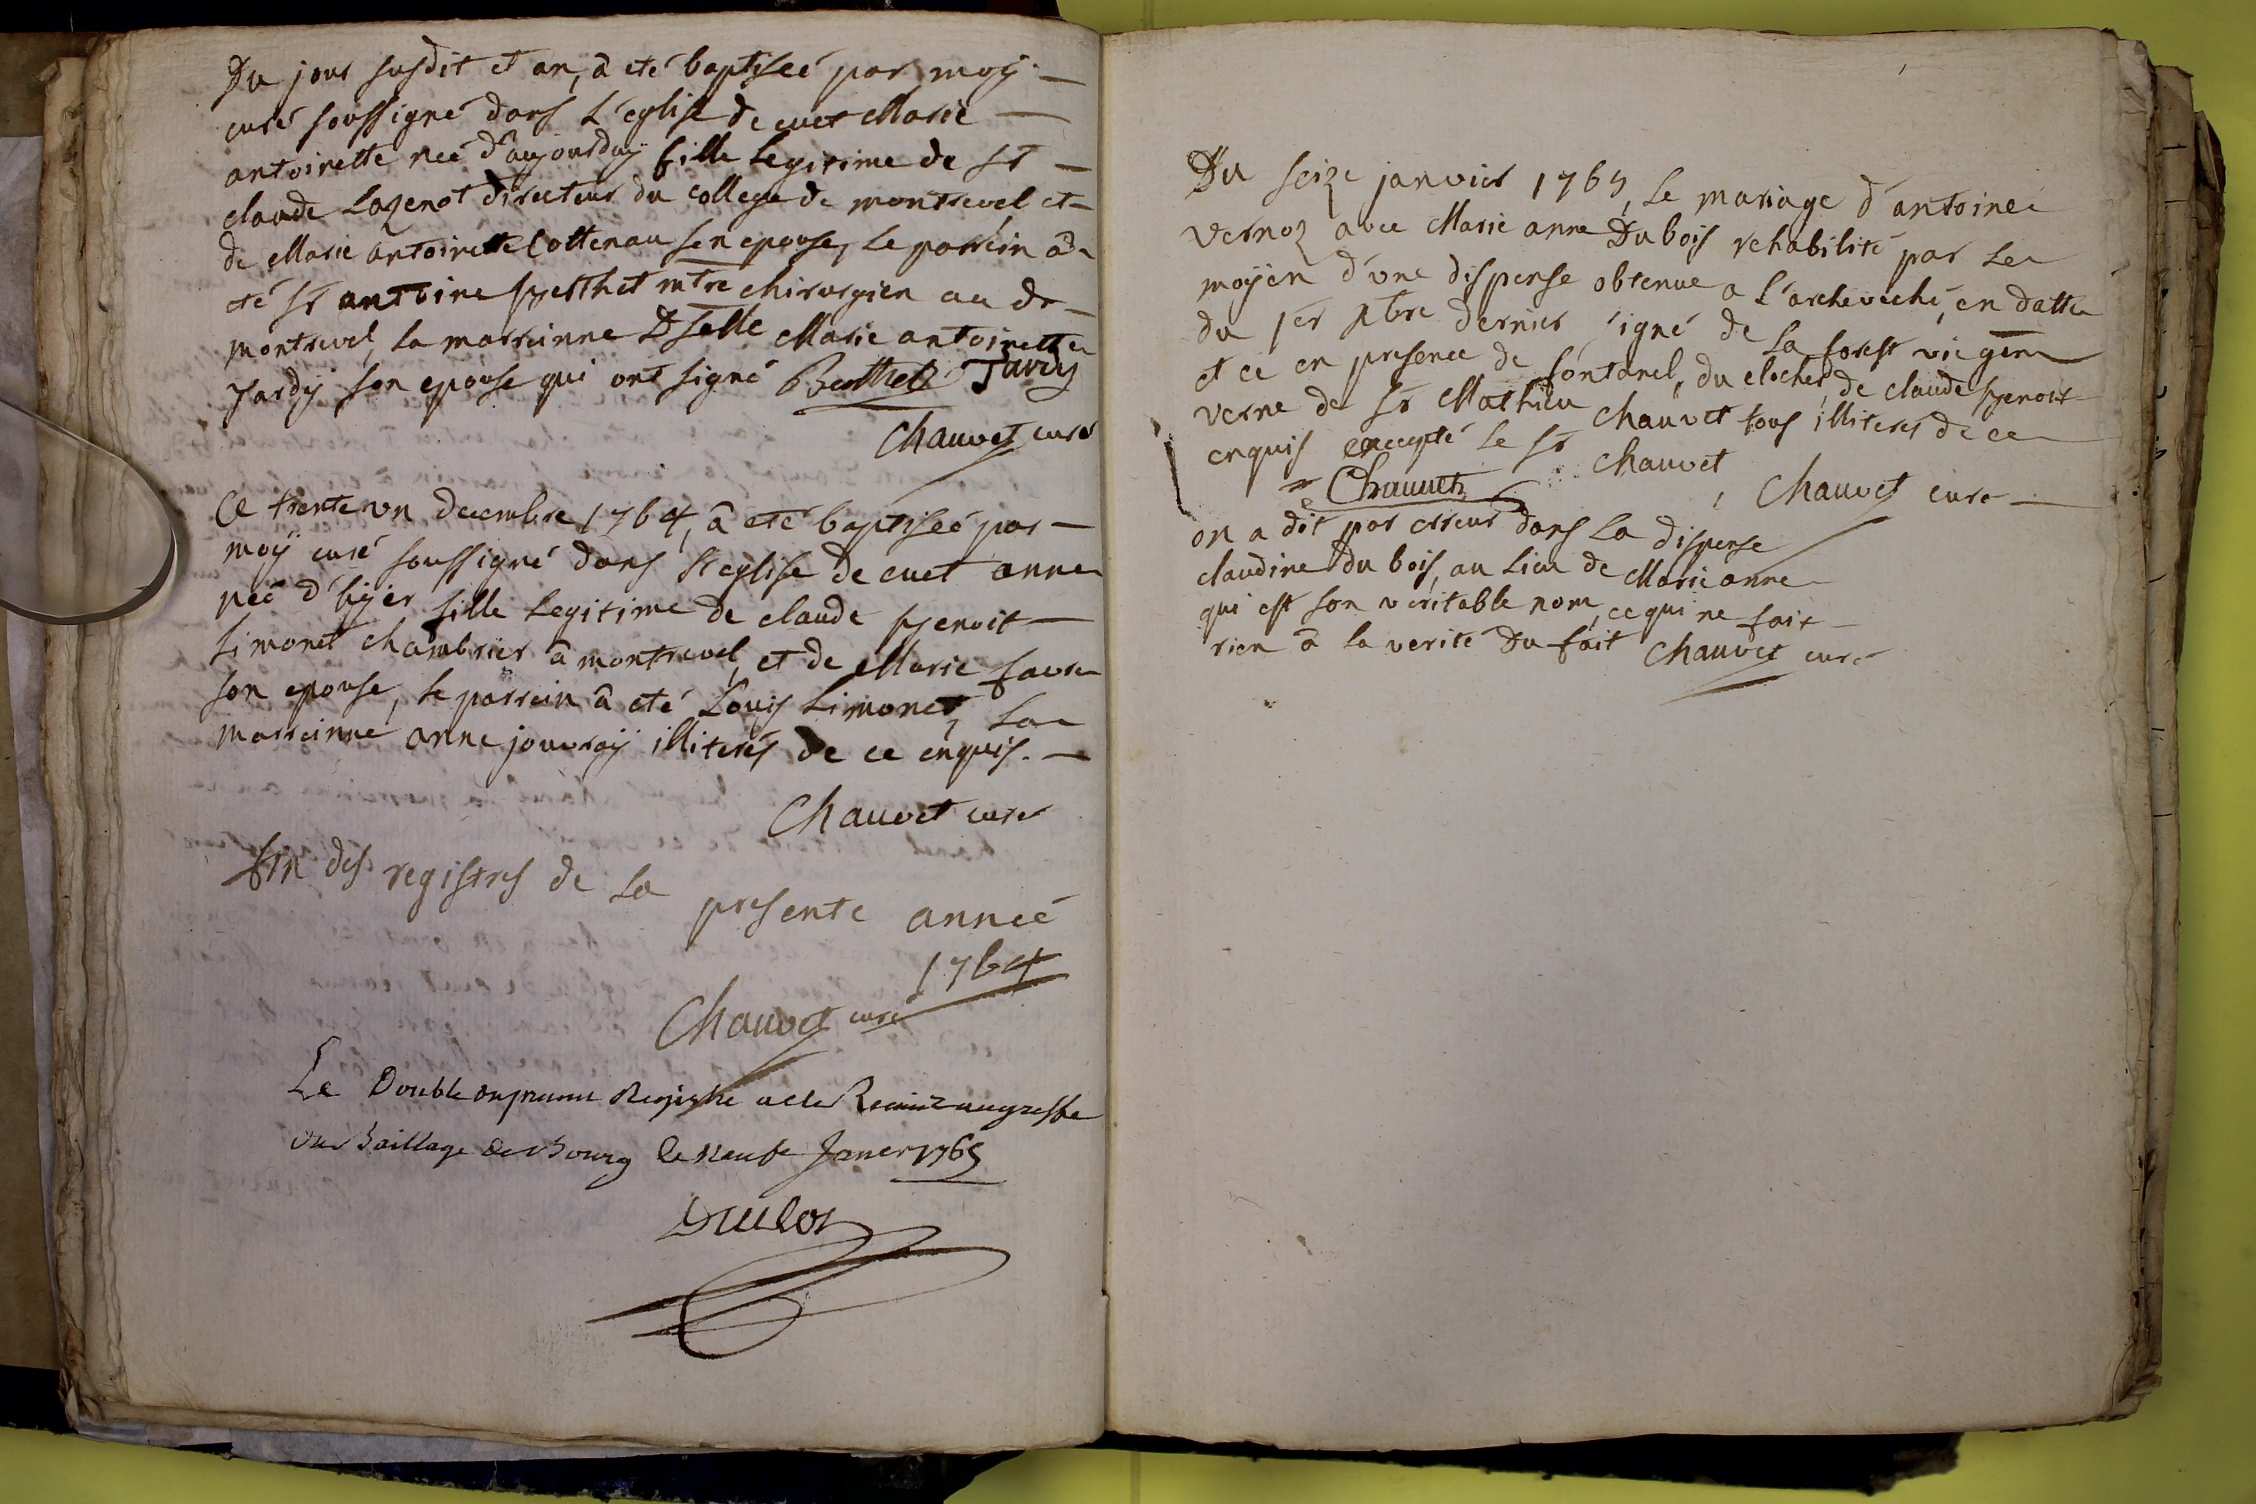 Du jour susdit et an, â eté baptiseé par moÿ
curé soussigné dans L'eglise de cuet Marie
antoinette neé d'aujourduÿ fille Legitime de Sr
claude Lazenot directeur du college de montrevel et
de Marie antoinette Cottenau son epouse, Le parrein â
eté Sr antoine Berthet mtre chirurgien au dr
montrevel, La marreinne Dselle Marie antoinette
Jardÿ son epouse qui ont signé Berthet Jardy
Chauvet curé
Ce trente un decembre 1764, â eté baptiseé par
moÿ curé soussigné dans L'eglise de cuet anne
neé d'hÿer fille Legitime de claude Benoit
Limonet chambrier â montrevel, et de Marie favre
son epouse, Le parrein â eté Louis Limonet, La
marreinne anne jouvraÿ illiterés de ce enquis.
Chauvet curé
fin des registres de La presente anneé
1764
Chauvet curé
Le Double du present Registre a eté Remis au greffe
du Baillage de Bourg le neufe Janer 1765
Duclos
Du seize janvier 1765, Le mariage d'antoine
vernoz avec Marie anne Dubois rehabilité par Le
moÿen d'une dispense obtenue a L'archeveché, en datte
du 1er Xbre dernier, signé de La forest vic gen
et ce en presence de fontanel, du clocher, de claude Benoit
verne de Sr Mathieu Chauvet tous illiterés de ce
enquis excepté Le Sr Chauvet
Chauvet Chauvet curé
on a dit par erreur dans La dispense
claudine Du bois, au Lieu de Marie anne
qui est son veritable nom, ce qui ne fait
rien â la verité Du fait Chauvet curé